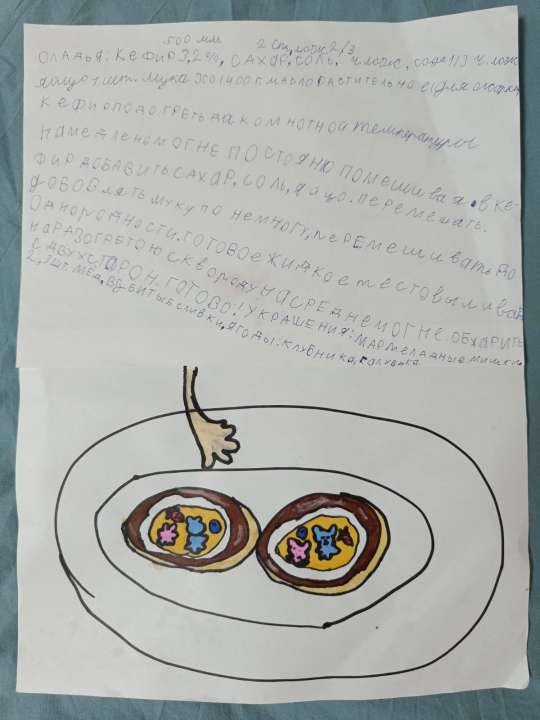 500 мл 2 ст, лож 2/3
Оладья: кефир 3,2%, сахар, соль, ч лож, сода 1/3 ч. лож
яйцо 1 шт. мука 300/400 г. масло растительное (для обжарки)
кефир подогреть да комнотной температуры
на медленом огне постояно помешивая. в ке-
фир добавить сахар, соль, яйцо. перемешать.
добовлять муку по немногу, перемешивать до
однородности. готовое жидкое тесто выливать
на разогретою сквороду на среднем огне. обжарить
с двух сторон. готово! украшения: мармеладные мишки
2, 3 шт. мёд, взбитые сливки, ягоды: клубника, голубика